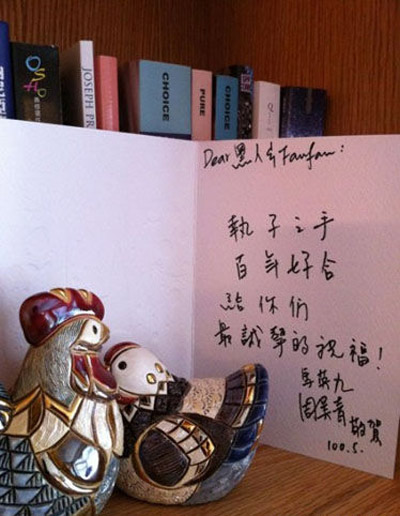 OSHO
JOSEPH PR
CHOICE
PURE
CHOICE
Dear 黑人 & Fanfan:
執子之手
百年好合
給你們
最誠摯的祝福！
馬英九
周美青 敬賀
100.5.